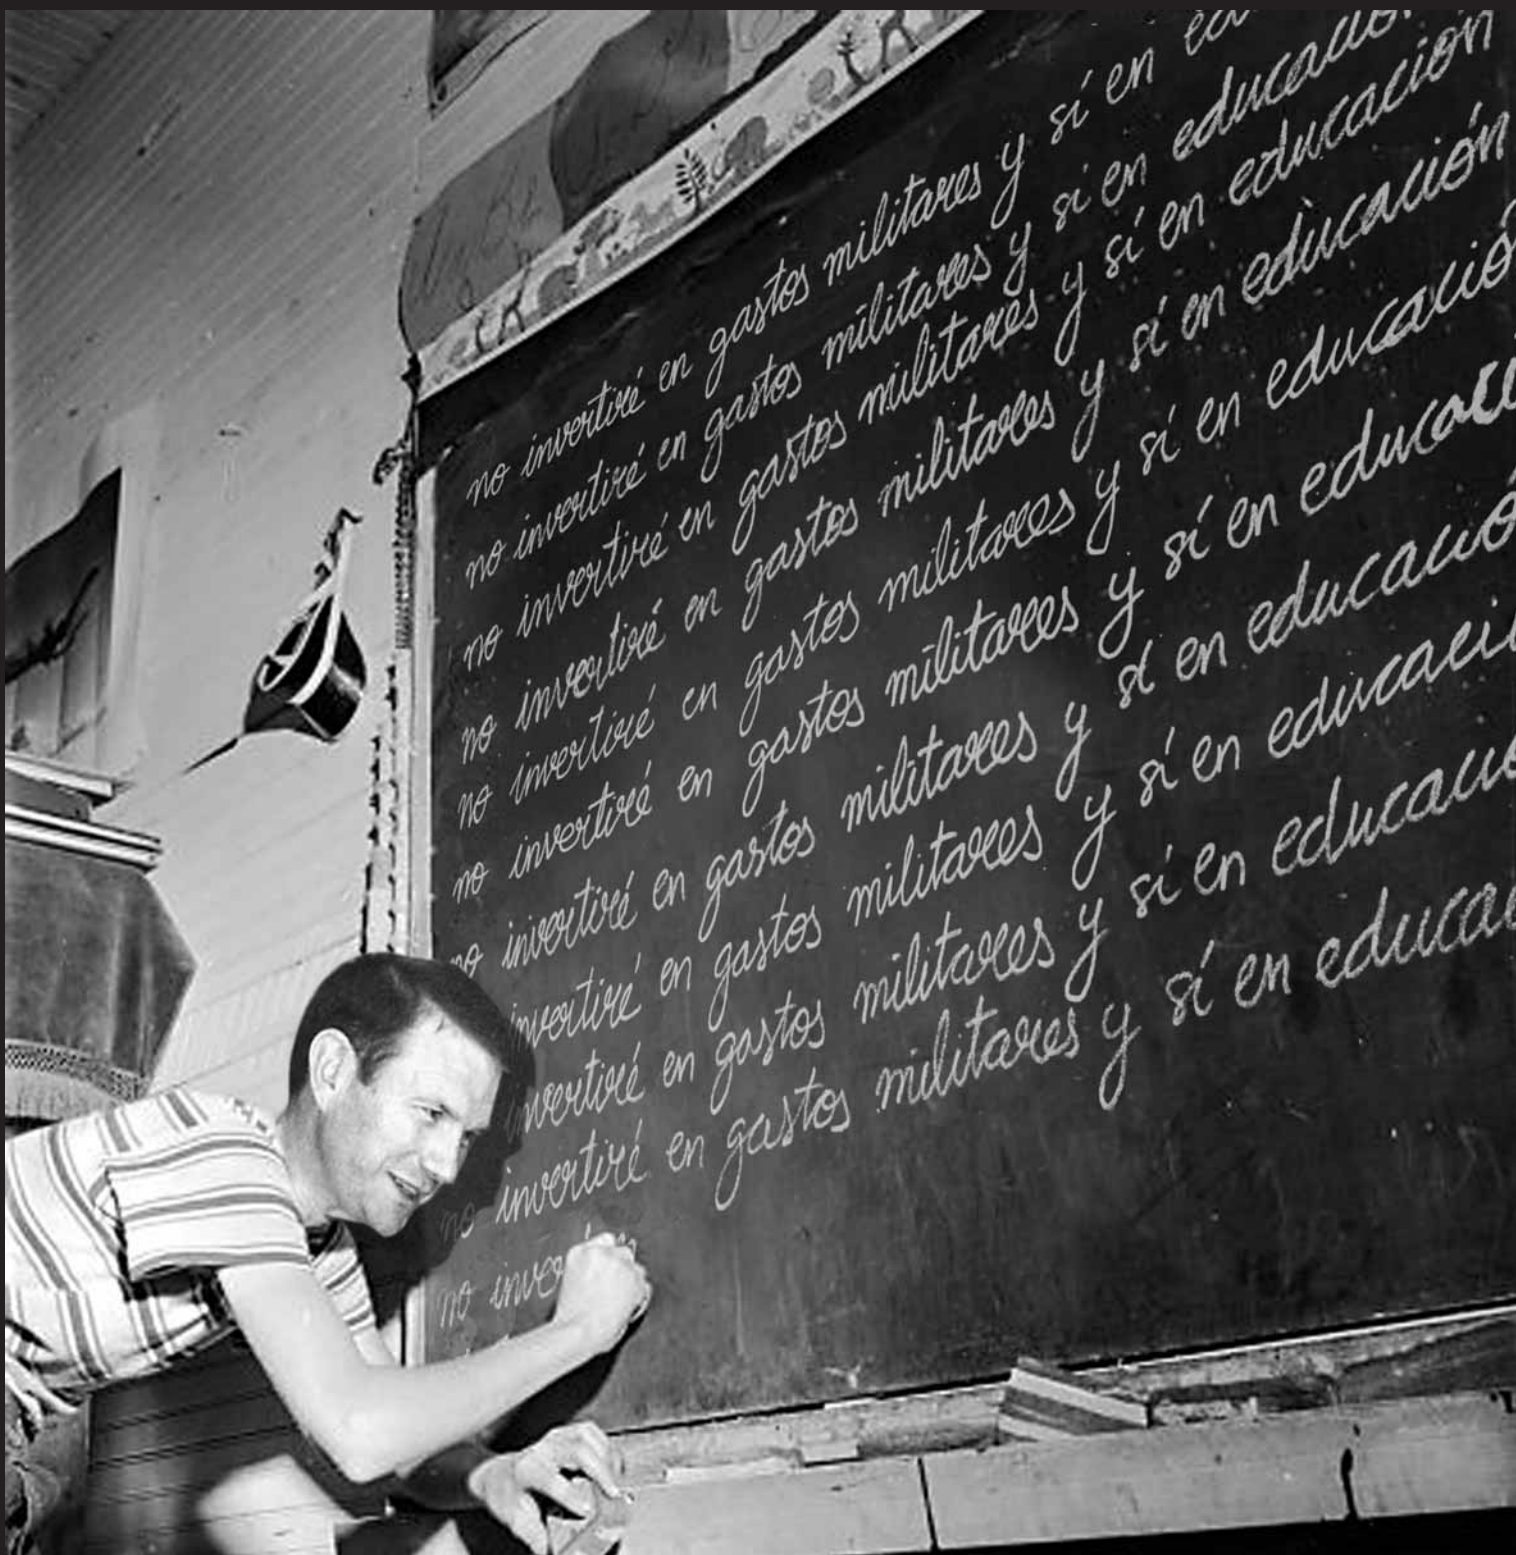 no invertiré en gastos militares y sí en
no invertiré en gastos militares y sí en educació
no invertiré en gastos militares y sí en educación
no invertiré en gastos militares y sí en educación
no invertiré en gastos militares y sí en educació
no invertiré en gastos militares y sí en educaci
no invertiré en gastos militares y sí en educació
invertiré en gastos militares y sí en educaci
invertiré en gastos militares y sí en educació
no invertiré en gastos militares y sí en educac
no inver